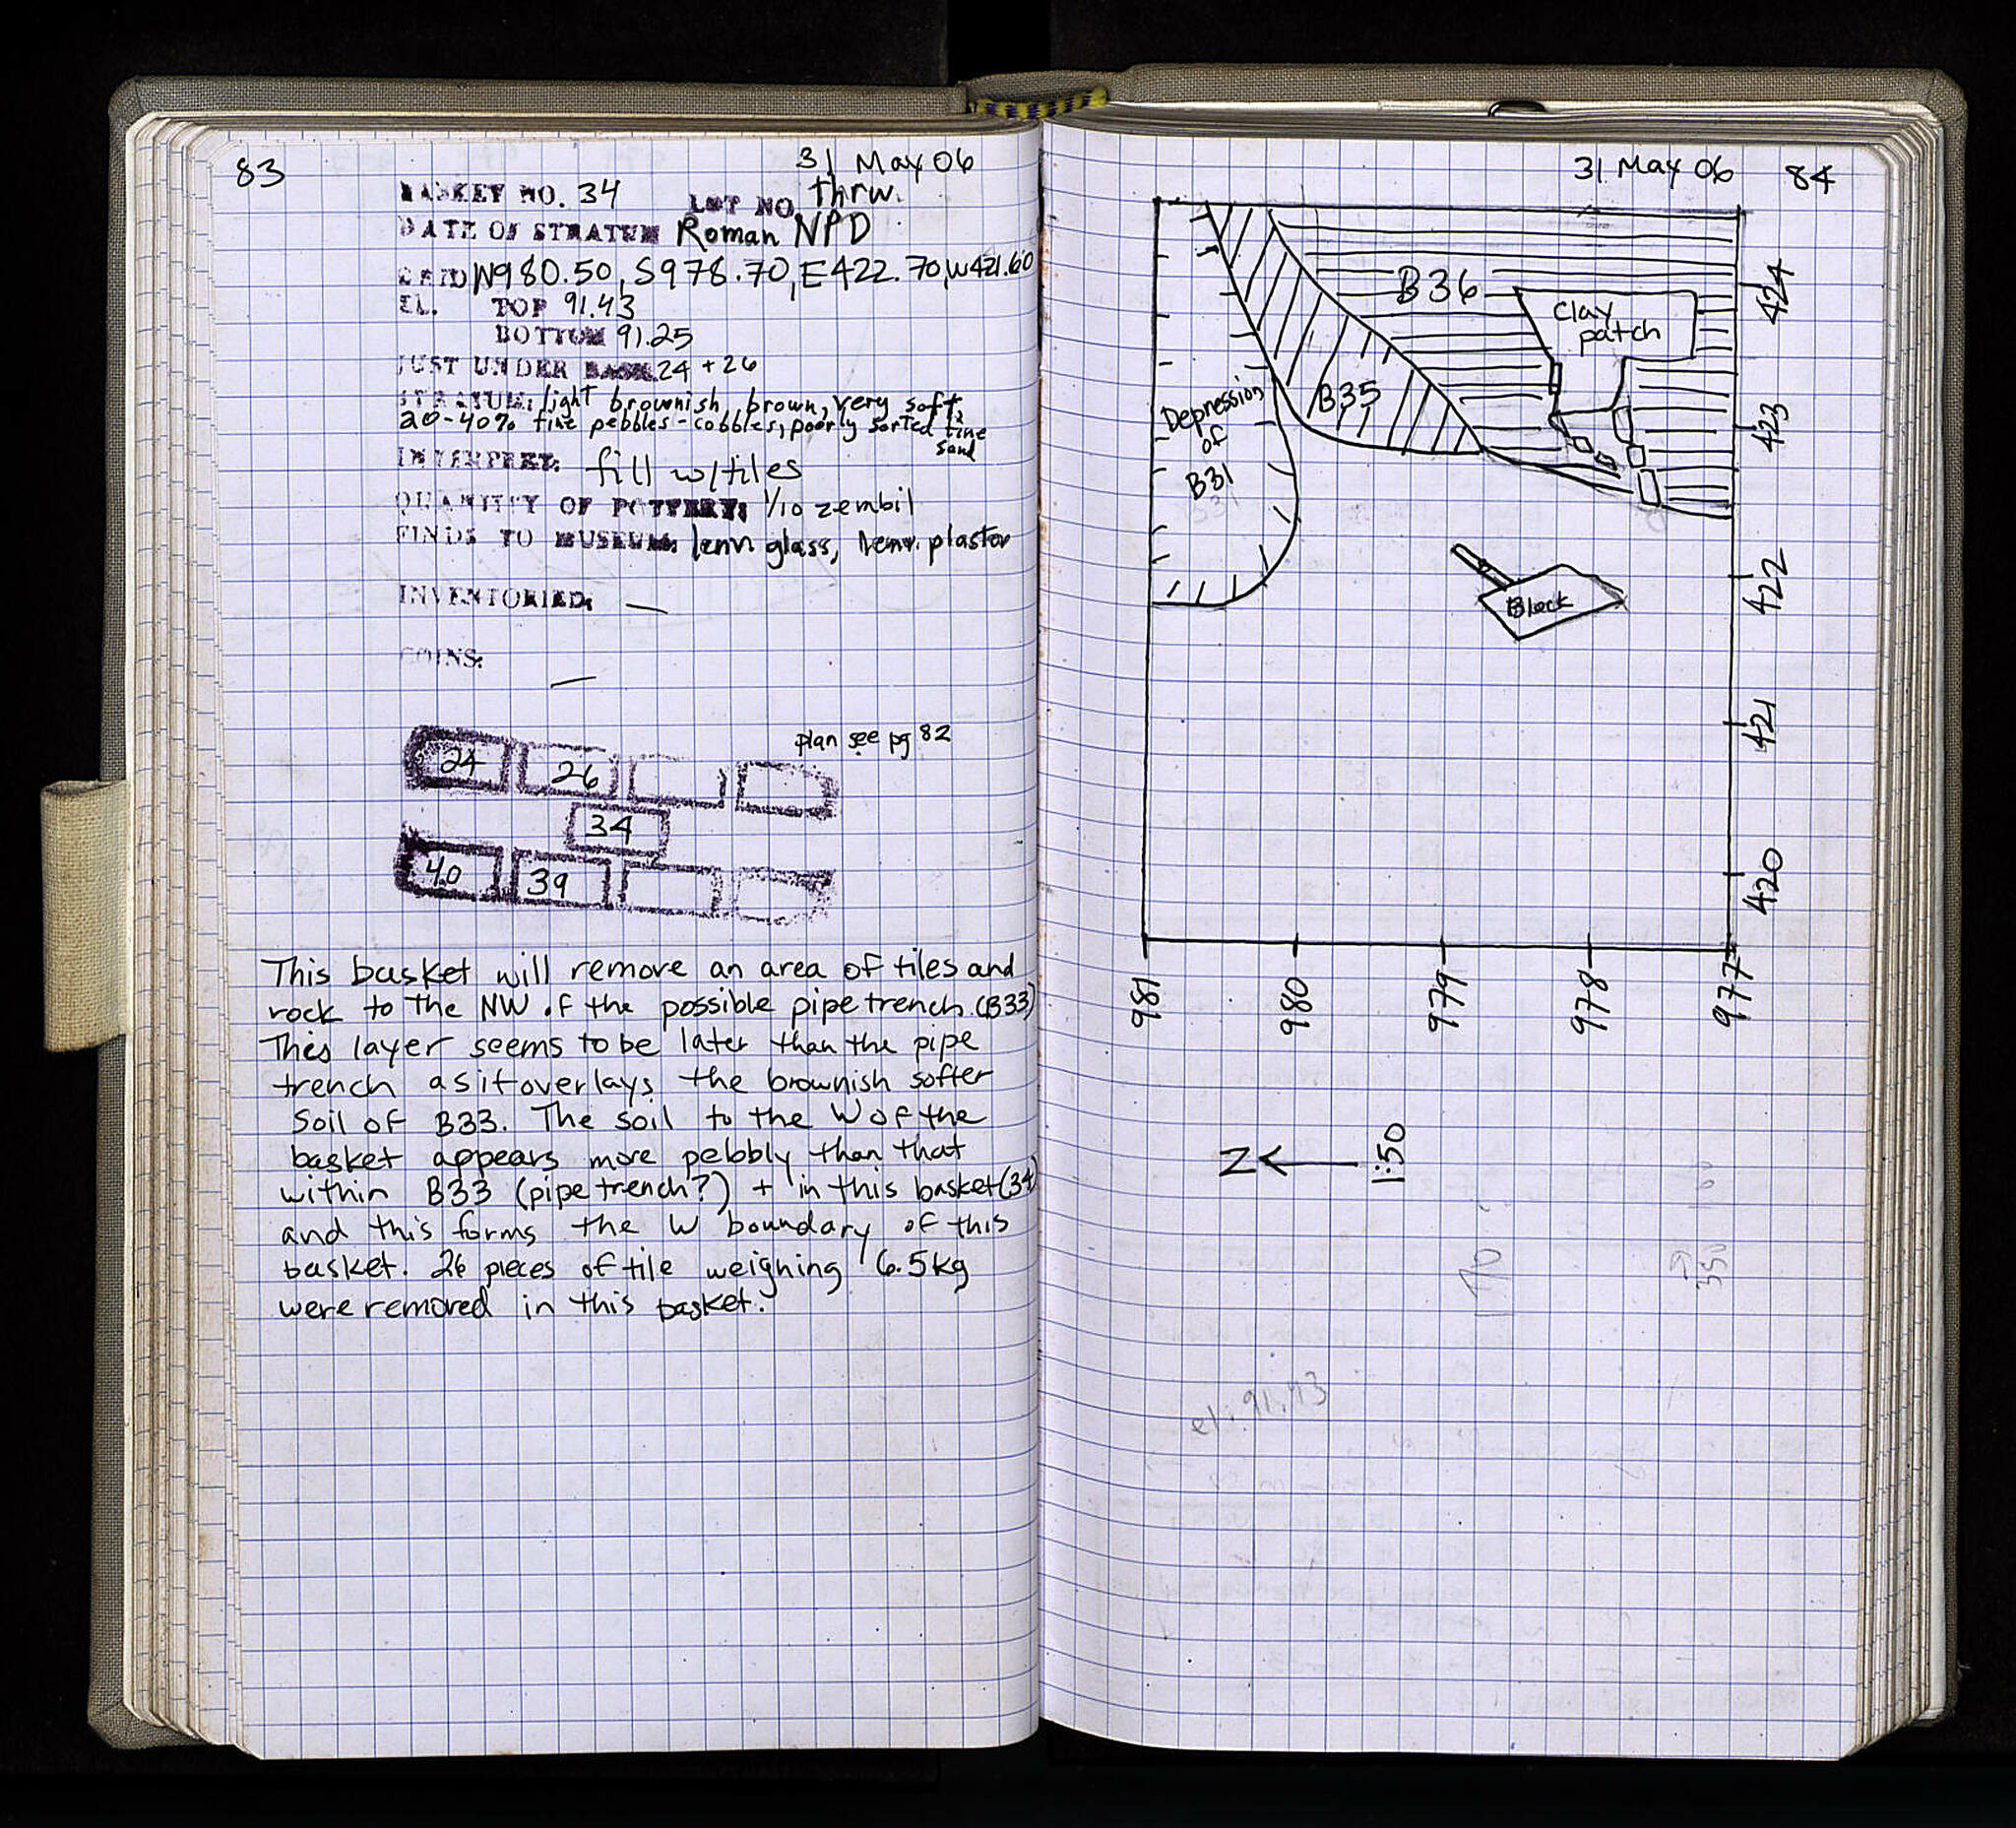 83
31 May 06
BASKET NO. 34 LOT NO. thrw.
DATE OF STRATUM Roman NPD
GRID N980.50, S978.70, E422.70, W421.60
EL. TOP 91.43
BOTTOM 91.25
JUST UNDER BASK. 24 + 26
STRATUM: light brownish brown, very soft,
20-40% fine pebbles - cobbles, poorly sorted fine
sand
INTERPRET: fill w/tiles
QUANTITY OF POTTERY: 1/10 zembil
FINDS TO MUSEUM: 1env glass, 1env. plaster
INVENTORIED: —
COINS:
—
plan see pg 82
24 26
34
40 39
This basket will remove an area of tiles and
rock to the NW of the possible pipe trench. (B33)
This layer seems to be later than the pipe
trench as it overlays the brownish softer
soil of B33. The soil to the W of the
basket appears more pebbly than that
within B33 (pipe trench?) + in this basket (34)
and this forms the W boundary of this
basket. 26 pieces of tile weighing 6.5kg
were removed in this basket.
31 May 06 84
B36
Clay
patch
B35
Depression
of
B31
Block
424
423
422
421
420
981
980
979
978
977
N
1:50
170
350
el: 91.93